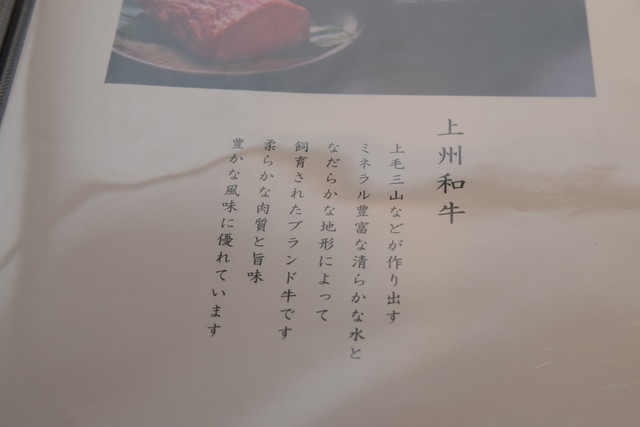 上州和牛
上毛三山などが作り出す
ミネラル豊富な清らかな水と
なだらかな地形によって
飼育されたブランド牛です
柔らかな肉質と旨味
豊かな風味に優れています